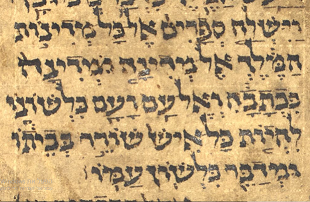 וישלח ספרים אל כל מדינות
המלך אל מדינה ומדינה
ככתבה ואל עם ועם כלשונו
להיות כל איש שורר בביתו
ומדבר כלשון עמו